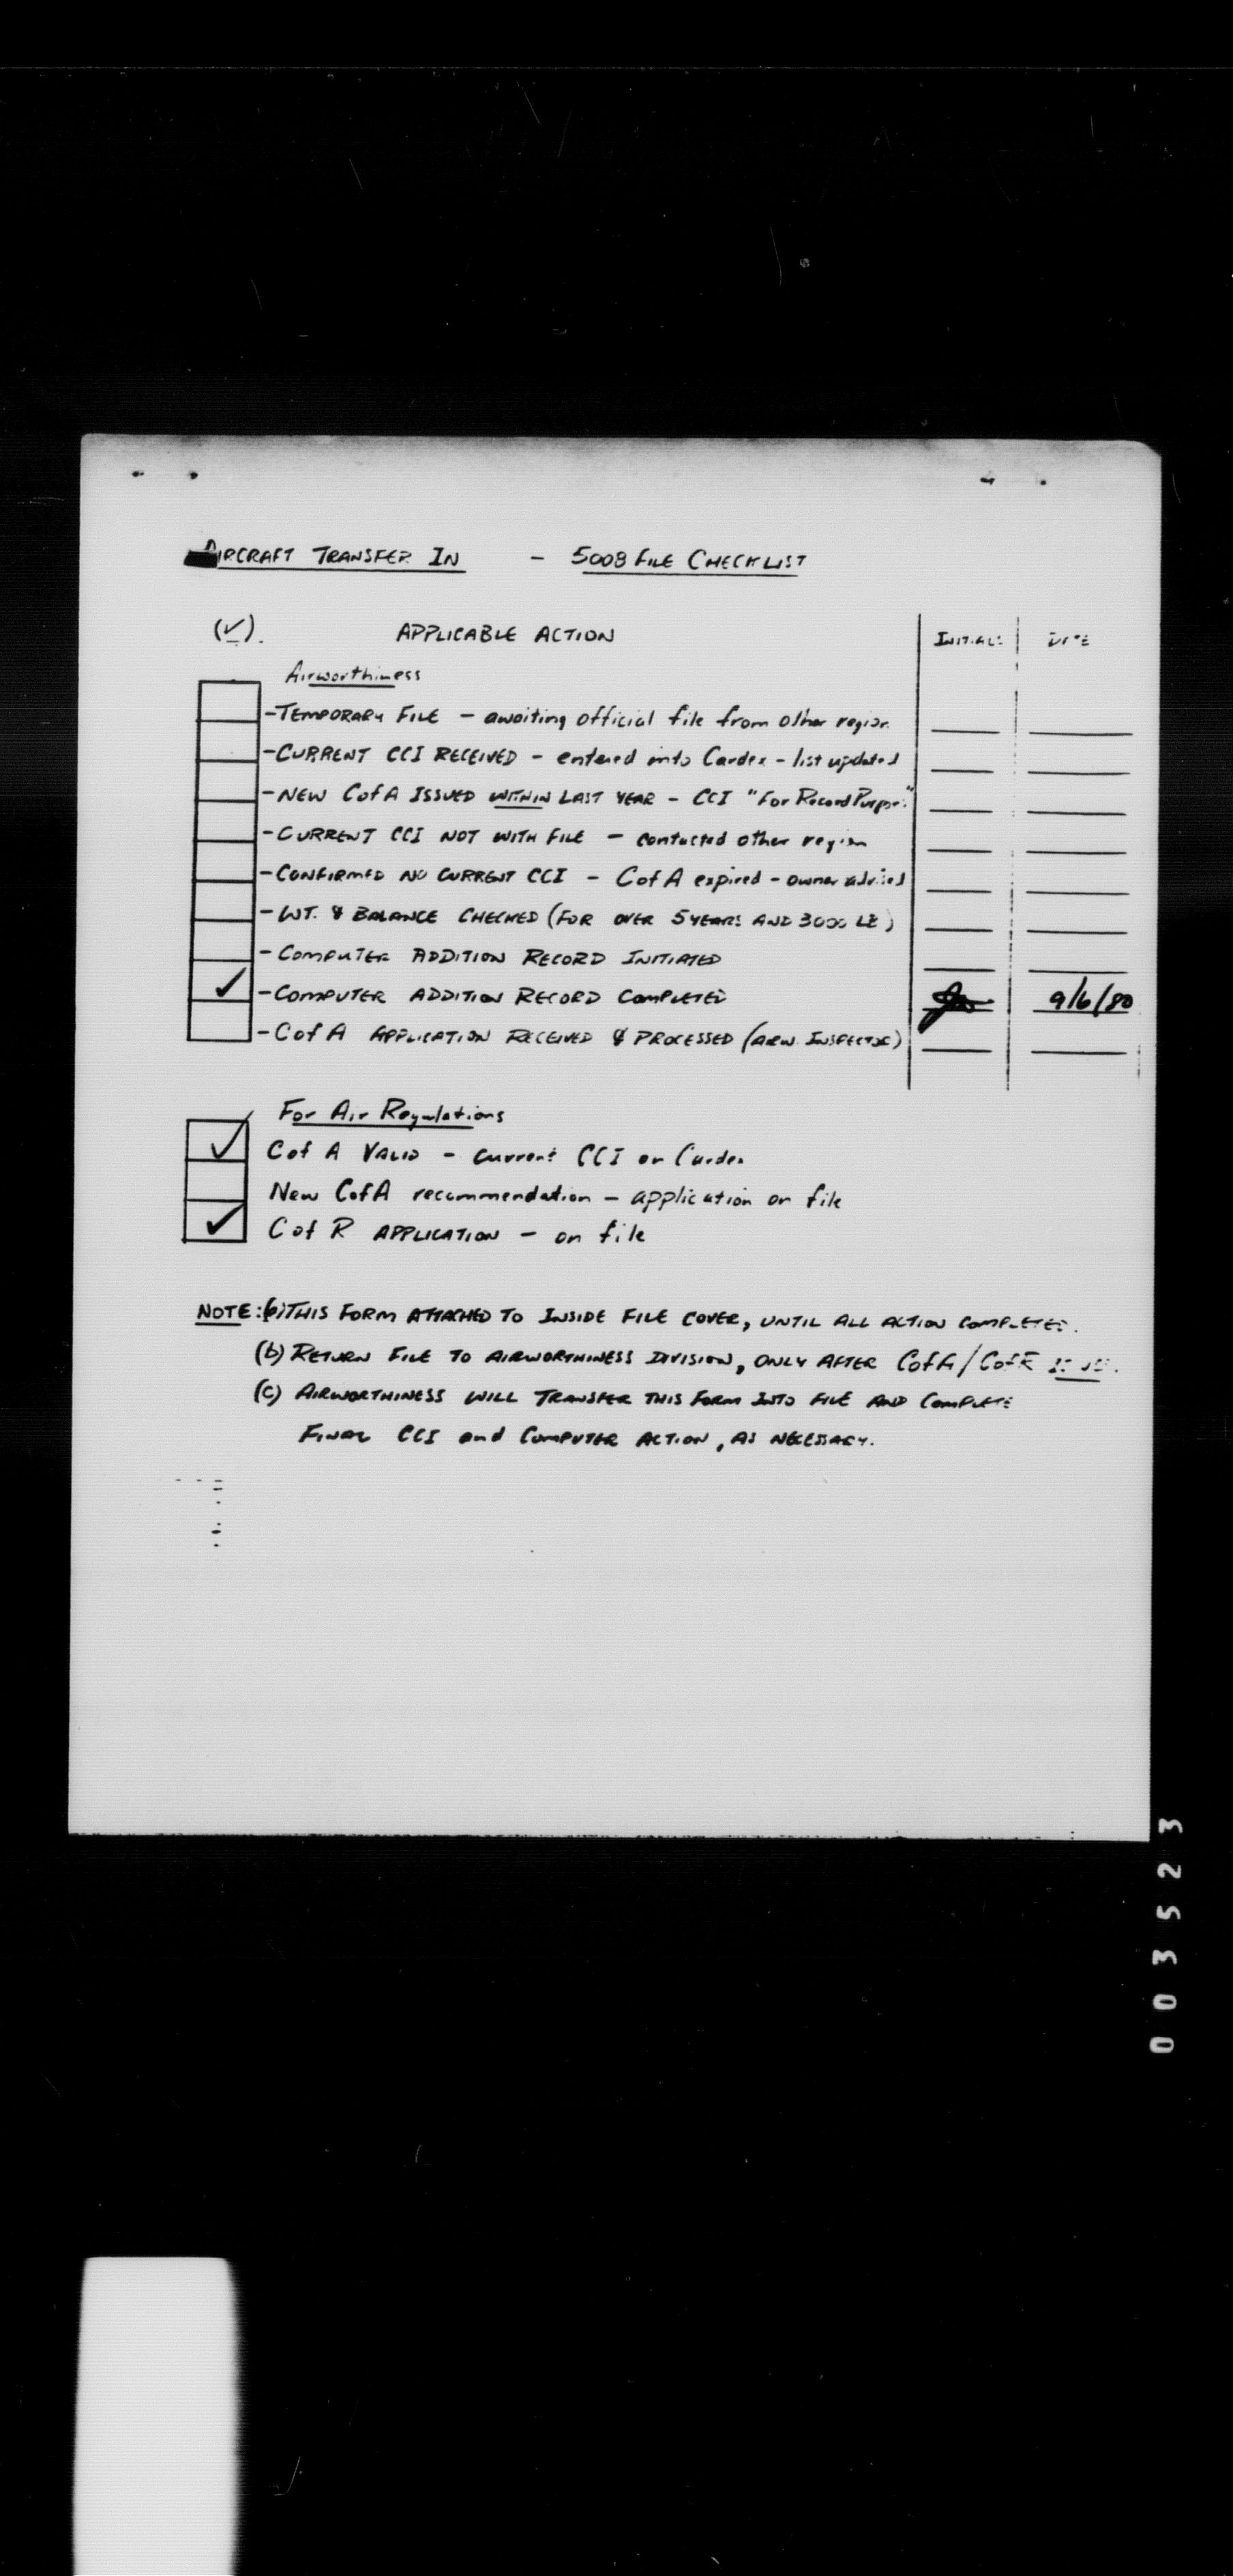 AIRCRAFT TRANSFER IN - 5008 FILE CHECKLIST
(✓). APPLICABLE ACTION INITIALS DATE
Airworthiness
-TEMPORARY FILE - awaiting official file from other region
-CURRENT CCI RECEIVED - entered into Cardex - list updated
-NEW CofA ISSUED WITHIN LAST YEAR - CCI "For Record Purpose"
-CURRENT CCI NOT WITH FILE - contacted other region
-CONFIRMED NO CURRENT CCI - CofA expired - owner advised
-WT. & BALANCE CHECKED (FOR OVER 5 YEARS AND 3000 LB)
-COMPUTER ADDITION RECORD INITIATED
✓ -COMPUTER ADDITION RECORD COMPLETED 9/6/80
-CofA APPLICATION RECEIVED & PROCESSED (ARW. INSPECTOR)
For Air Regulations
✓ Cof A VALID - current CCI or Cardex
New CofA recommendation - application on file
✓ Cof R APPLICATION - on file
NOTE: (a) THIS FORM ATTACHED TO INSIDE FILE COVER, UNTIL ALL ACTION COMPLETED.
(b) RETURN FILE TO AIRWORTHINESS DIVISION, ONLY AFTER CofA/CofR
(c) AIRWORTHINESS WILL TRANSFER THIS FORM INTO FILE AND COMPLETE
FINAL CCI and COMPUTER ACTION, AS NECESSARY.
003523